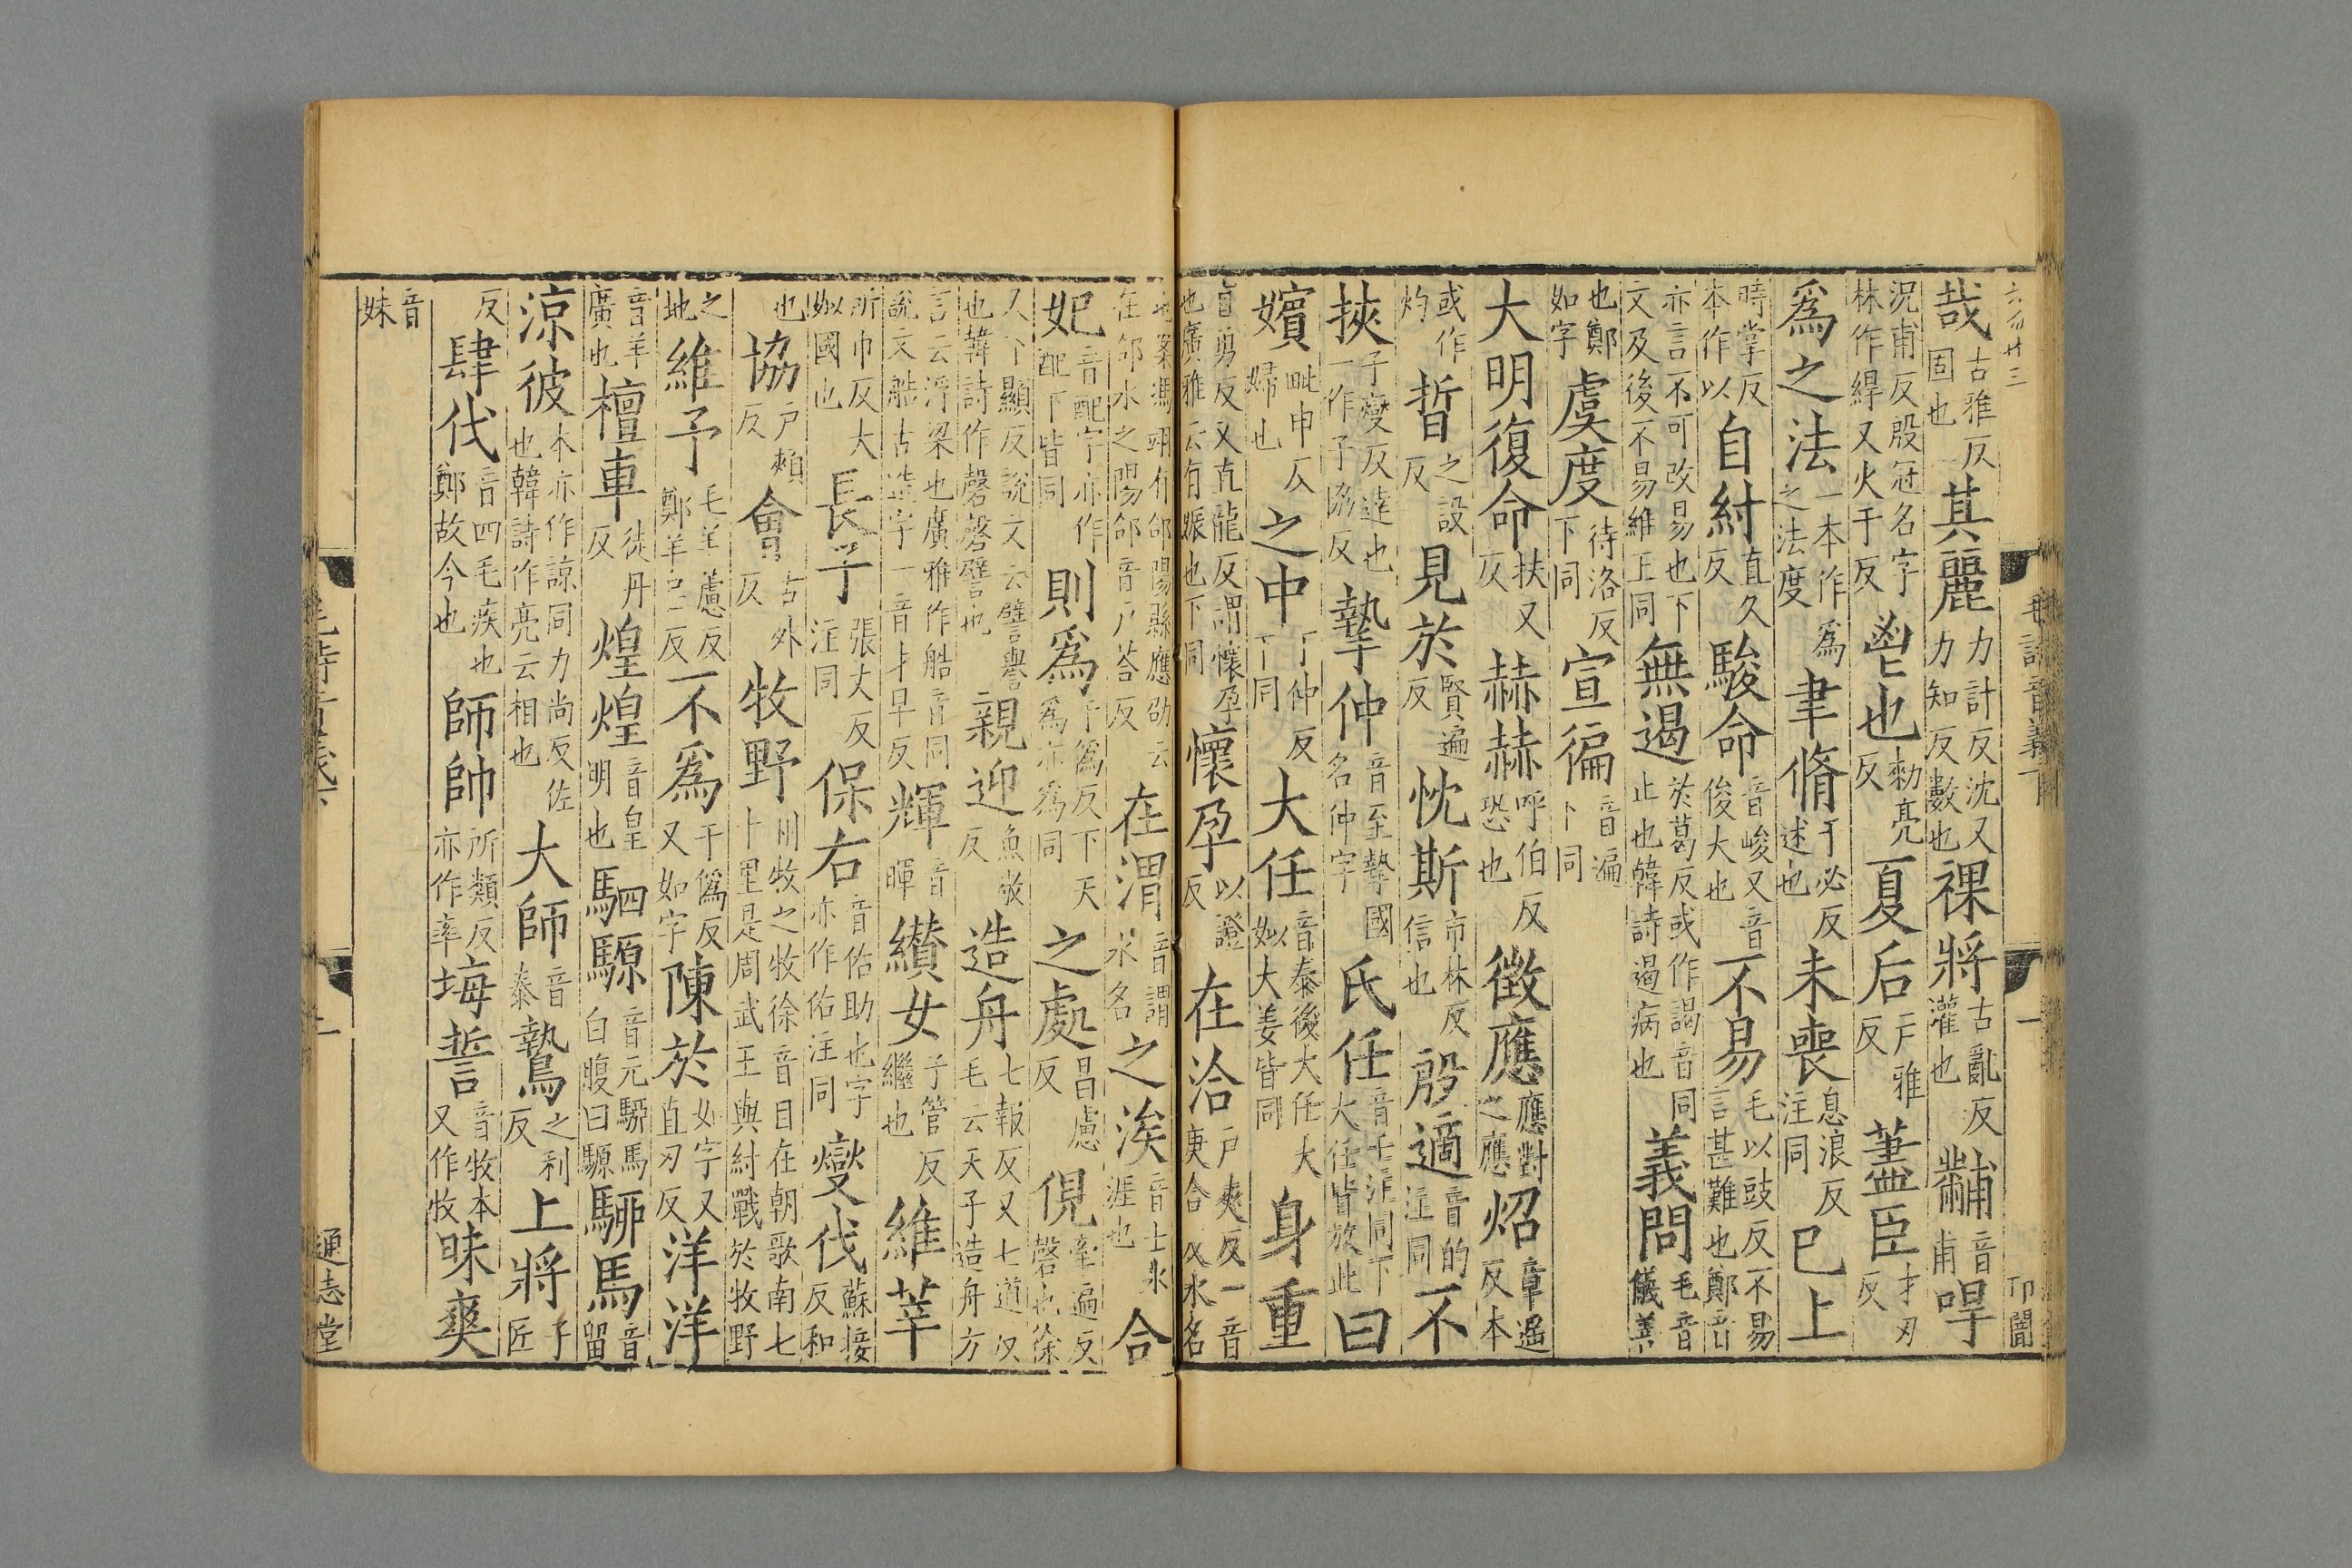 哉古雅反固也其麗力計反沈又力知反數也祼將古亂反灌也黼音甫哻
況甫反殷冠名字林作綒又火于反鬯也勑亮反夏后戶雅反藎臣才刃反
爲之法一本作爲之法度聿脩于必反述也未喪息浪反注同已上
時掌反本作以自紂直久反駿命音峻又音俊大也不易毛以豉反不易言甚難也鄭音
亦言不可改易也下文及後不易維王同無遏於葛反或作謁音同止也韓詩遏病也義問毛音儀善
也鄭如字虞度待洛反下同宣徧音遍下同
大明復命扶又反赫赫呼伯反恐也徵應應對之應炤章遙反本
或作灼晢之設反見於賢遍反忱斯市林反信也殷適音的注同不
挾子燮反達也一作子協反摯仲音至摯國名仲字氏任音壬注同下大任皆放此曰
嬪毗申反婦也之中丁仲反下同大任音泰後大任大姒大姜皆同身重
直勇反又直龍反謂懷孕也廣雅云有娠也下同懷孕以證反在洽戶夾反一音庚合反水名
也案馮翊有郃陽縣應劭云在郃水之陽郃音戶荅反在渭音謂水名之涘音士水涯也合
妃音配字亦作配下皆同則爲于爲反下天爲亦爲同之處昌慮反俔牽遍反磬也徐
又下顯反說文云譬譽也韓詩作磬磬譬也親迎魚敬反造舟七報反又七道反毛云天子造舟方
言云浮梁也廣雅作艁音同說文艁古造字一音才早反輝音暉纘女子管反繼也維莘
所巾反大姒國也長子張丈反注同保右音佑助也字亦作佑注同燮伐蘇接反和
也協戶頰反會古外反牧野州牧之牧徐音目在朝歌南七十里是周武王與紂戰於牧野
之地維予毛羊慮反鄭羊己二反不爲于僞反又如字陳於如字又直刃反洋洋
音羊廣也檀車徒丹反煌煌音皇明也駟騵音元騮馬白腹曰騵駵馬音留
涼彼本亦作諒同力尚反佐也韓詩作亮云相也大師音泰鷙之利反上將子匠
反肆伐音四毛疾也鄭故今也師帥所類反亦作率坶誓音牧本又作牧昧爽
音妹
通志堂